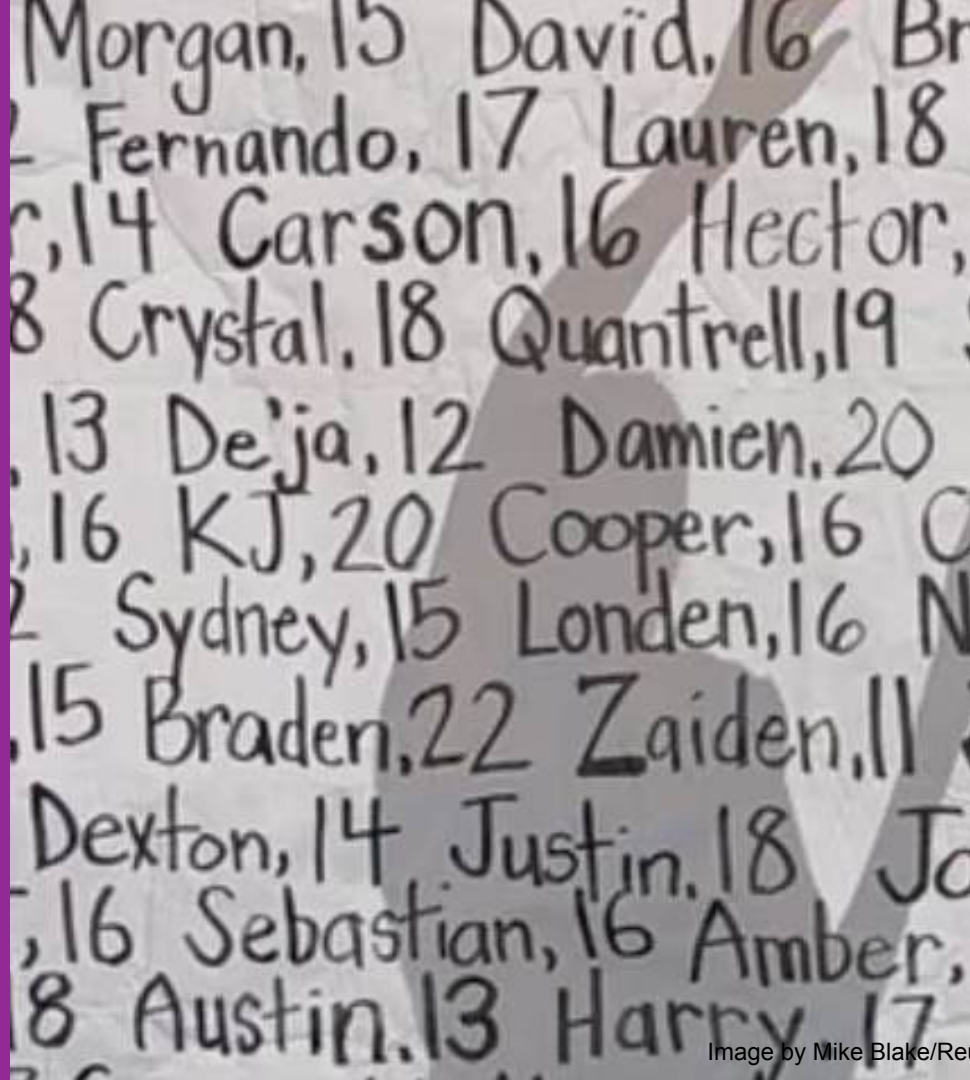 Morgan, 15 David, 16 Br
Fernando, 17 Lauren, 18
,14 Carson, 16 Hector,
8 Crystal, 18 Quantrell, 19
, 13 De'ja, 12 Damien, 20
,16 KJ, 20 Cooper, 16
Sydney, 15 Londen, 16 N
,15 Braden, 22 Zaiden, 11
Dexton, 14 Justin, 18 Jo
,16 Sebastian, 16 Amber,
18 Austin, 13 Harry, 17
Image by Mike Blake/Reu